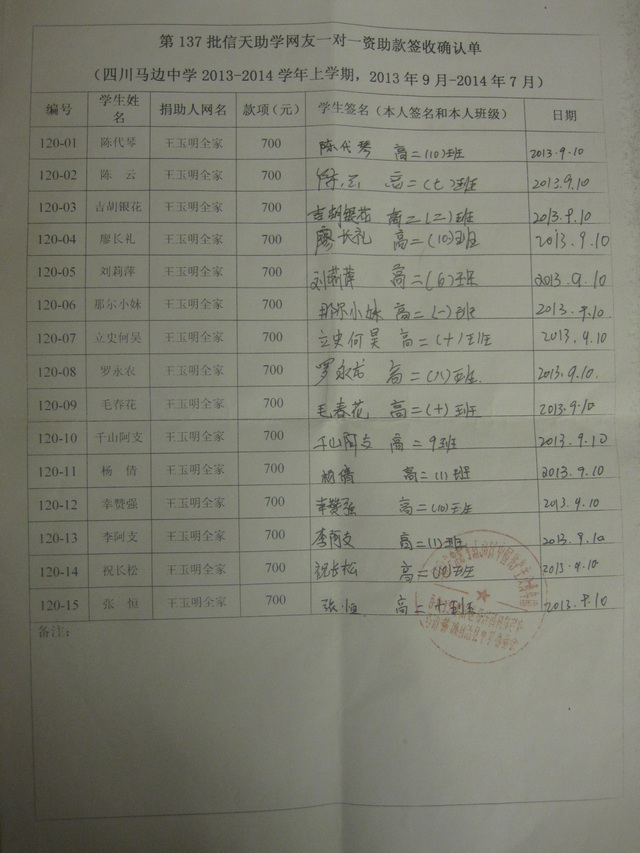 第 137 批信天助学网友一对一资助款签收确认单
（四川马边中学 2013-2014 学年上学期，2013 年 9 月-2014 年 7 月）
编号 学生姓名 捐助人网名 款项（元） 学生签名（本人签名和本人班级） 日期
120-01 陈代琴 王玉明全家 700 陈代琴 高二(10)班 2013.9.10
120-02 陈 云 王玉明全家 700 陈云 高二(七)班 2013.9.10
120-03 吉胡银花 王玉明全家 700 吉胡银花 高二(二)班 2013.9.10
120-04 廖长礼 王玉明全家 700 廖长礼 高二(10)班 2013.9.10
120-05 刘莉萍 王玉明全家 700 刘莉萍 高二(6)班 2013.9.10
120-06 那尔小妹 王玉明全家 700 那尔小妹 高二(一)班 2013.9.10
120-07 立史何吴 王玉明全家 700 立史何吴 高二(十)班 2013.9.10
120-08 罗永农 王玉明全家 700 罗永农 高二(八)班. 2013.9.10.
120-09 毛春花 王玉明全家 700 毛春花 高二(十)班 2013.9.10
120-10 千山阿支 王玉明全家 700 千山阿支 高二9班 2013.9.10
120-11 杨 倩 王玉明全家 700 杨倩 高二(1)班 2013.9.10
120-12 幸赞强 王玉明全家 700 幸赞强 高二(10)班 2013.9.10
120-13 李阿支 王玉明全家 700 李阿支 高二(1)班 2013.9.10
120-14 祝长松 王玉明全家 700 祝长松 高二(10)班 2013.9.10
120-15 张 恒 王玉明全家 700 张恒 2013.9.10
备注：